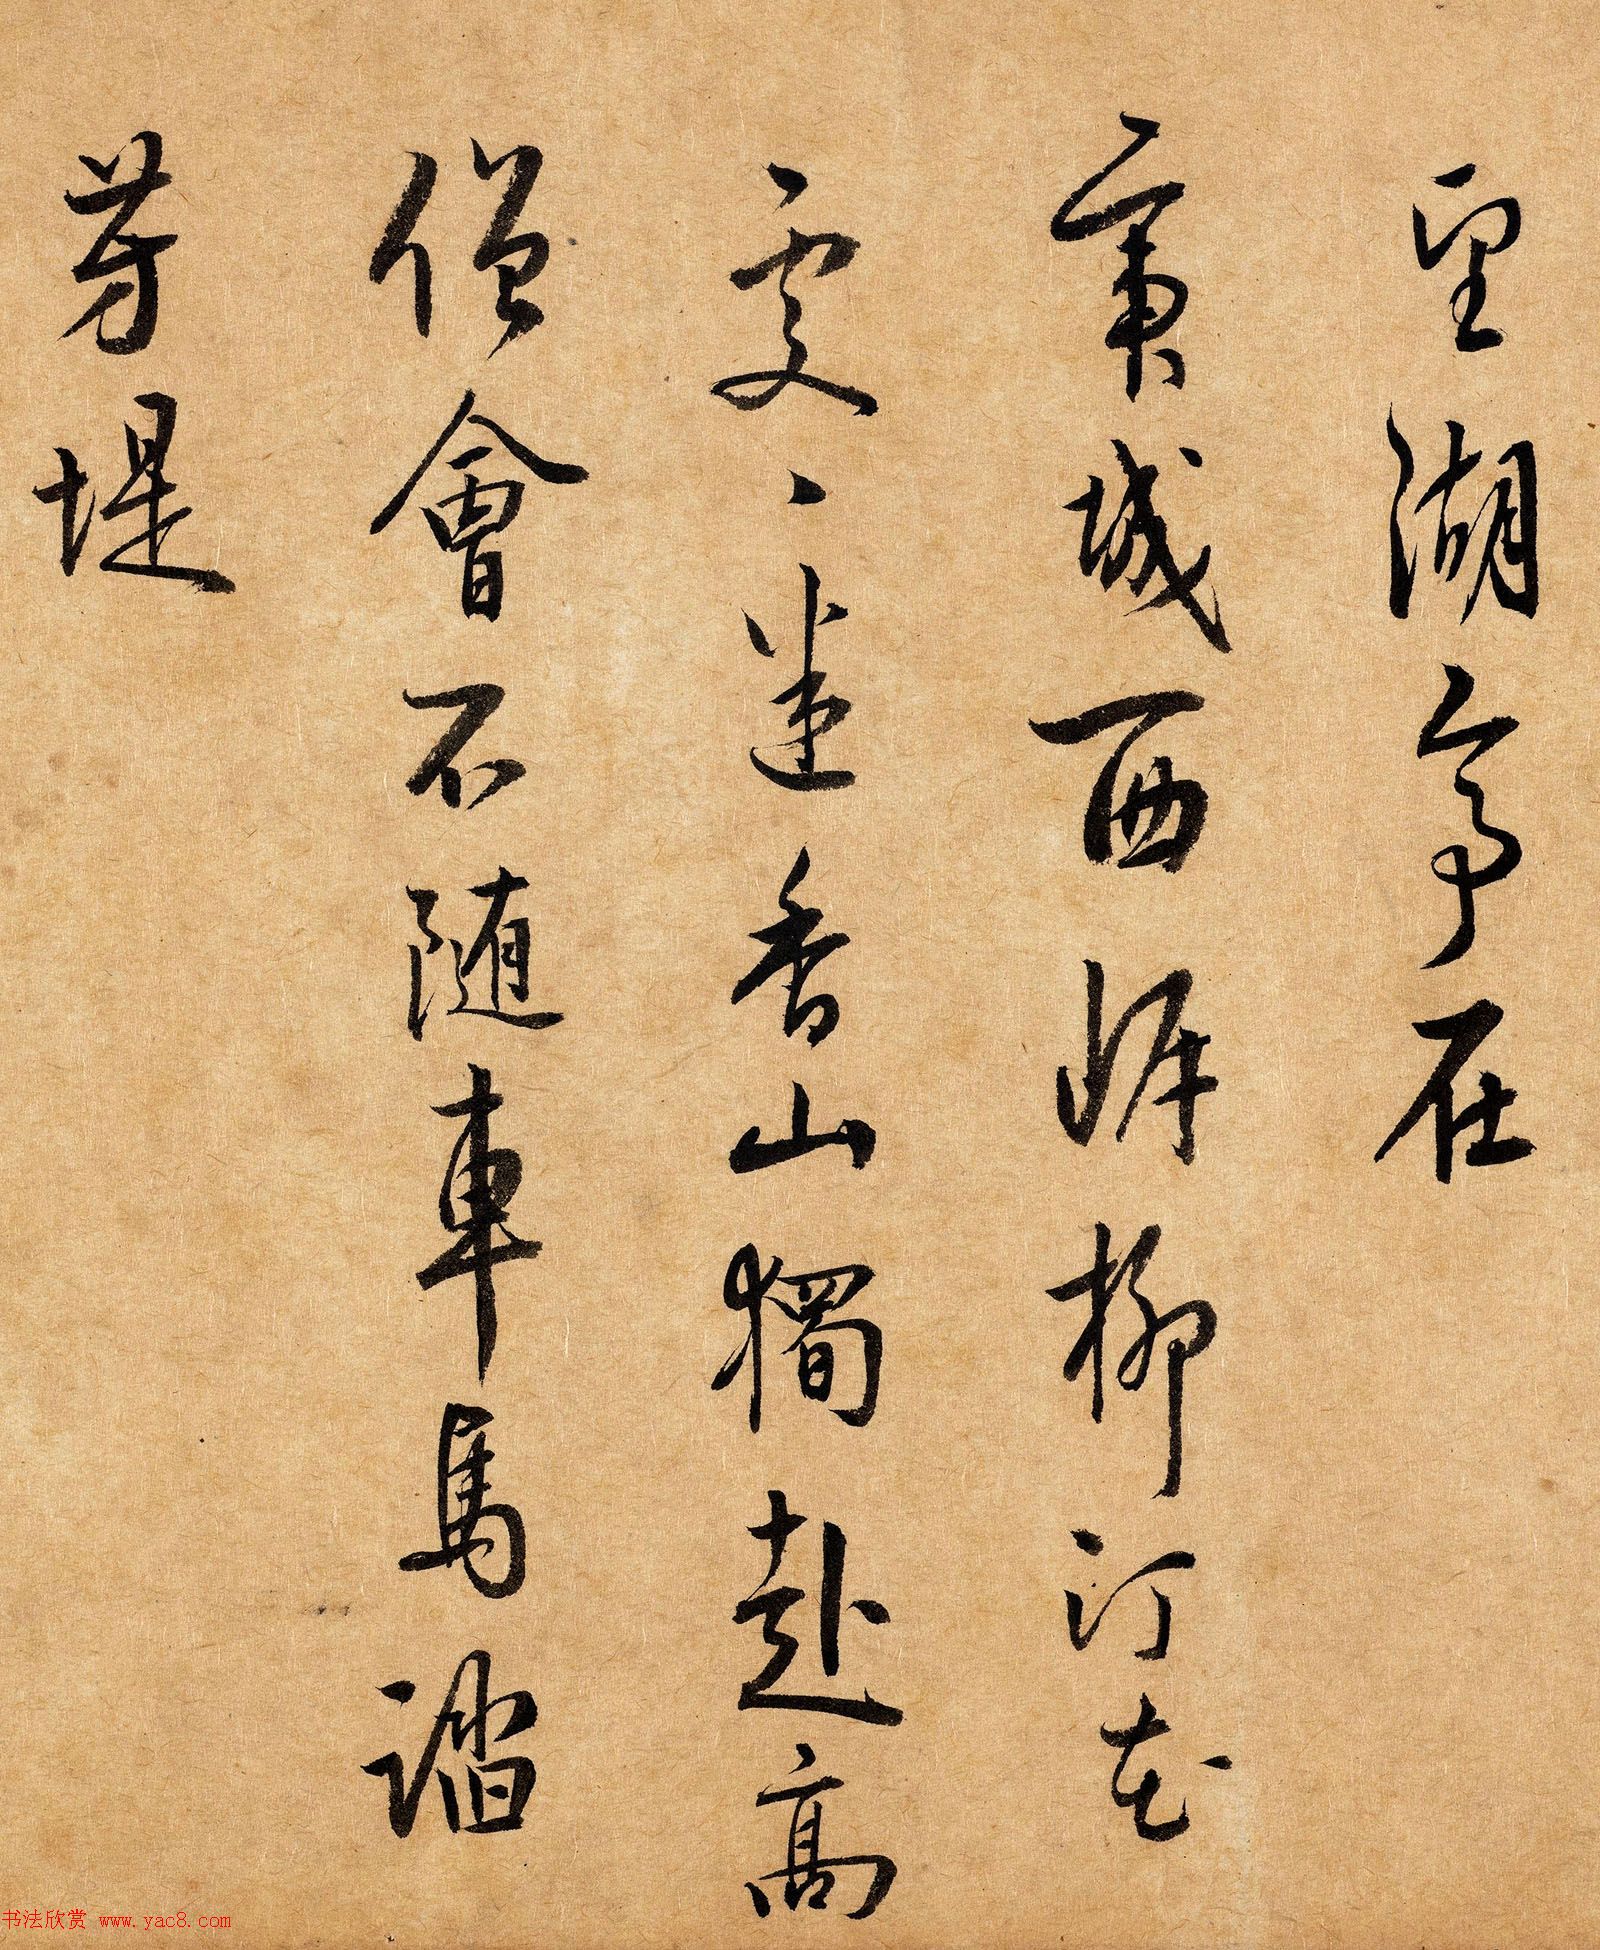 望湖亭在
帝城西岸柳汀花
處〻迷香山獨赴高
僧會不隨車馬踏
芳堤
书法欣赏 www.yac8.com